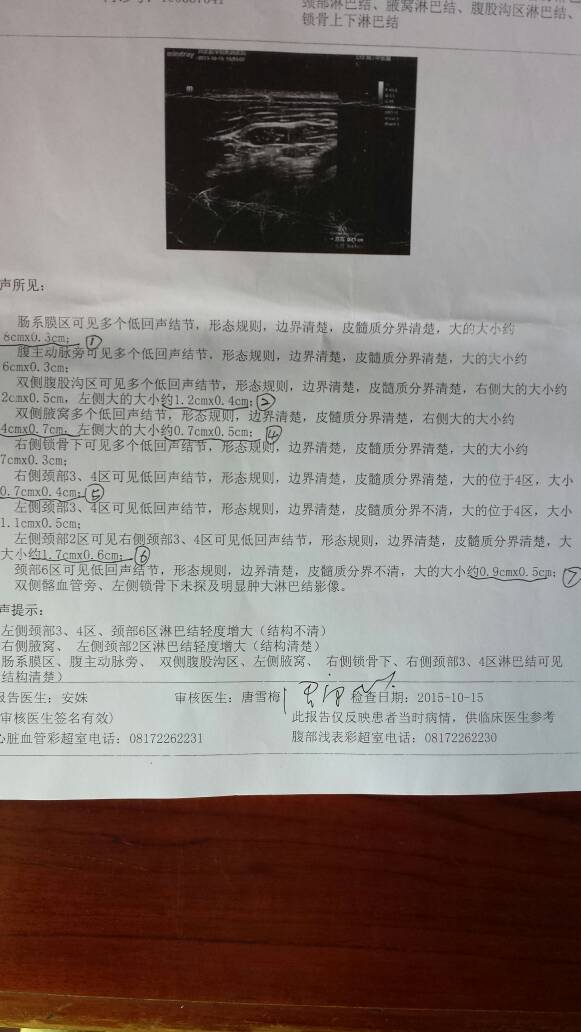 颈部淋巴结、腋窝淋巴结、腹股沟区淋巴结、
锁骨上下淋巴结
mindray
声所见：
肠系膜区可见多个低回声结节，形态规则，边界清楚，皮髓质分界清楚，大的大小约
8cmx0.3cm； ①
腹主动脉旁可见多个低回声结节，形态规则，边界清楚，皮髓质分界清楚，大的大小约
6cmx0.3cm；
双侧腹股沟区可见多个低回声结节，形态规则，边界清楚，皮髓质分界清楚，右侧大的大小约
2cmx0.5cm，左侧大的大小约1.2cmx0.4cm； ②
双侧腋窝多个低回声结节，形态规则，边界清楚，皮髓质分界清楚，右侧大的大小约
4cmx0.7cm，左侧大的大小约0.7cmx0.5cm； ④
右侧锁骨下可见多个低回声结节，形态规则，边界清楚，皮髓质分界清楚，大的大小约
7cmx0.3cm；
右侧颈部3、4区可见低回声结节，形态规则，边界清楚，皮髓质分界清楚，大的位于4区，大小
0.7cmx0.4cm； ⑤
左侧颈部3、4区可见低回声结节，形态规则，边界清楚，皮髓质分界不清，大的位于4区，大小
1.1cmx0.5cm；
左侧颈部2区可见右侧颈部3、4区可见低回声结节，形态规则，边界清楚，皮髓质分界清楚，大
大小约1.7cmx0.6cm； ⑥
颈部6区可见低回声结节，形态规则，边界清楚，皮髓质分界不清，大的大小约0.9cmx0.5cm； ⑦
双侧髂血管旁、左侧锁骨下未探及明显肿大淋巴结影像。
声提示：
左侧颈部3、4区、颈部6区淋巴结轻度增大（结构不清）
右侧腋窝、 左侧颈部2区淋巴结轻度增大（结构清楚）
肠系膜区、腹主动脉旁、 双侧腹股沟区、左侧腋窝、 右侧锁骨下、右侧颈部3、4区淋巴结可见
结构清楚）
报告医生：安姝 审核医生：唐雪梅 检查日期：2015-10-15
审核医生签名有效） 此报告仅反映患者当时病情，供临床医生参考
心脏血管彩超室电话：08172262231 腹部浅表彩超室电话：08172262230